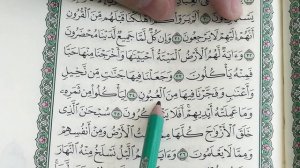 أَلَمْ يَرَوْا۟ كَمْ أَهْلَكْنَا قَبْلَهُم مِّنَ ٱلْقُرُونِ
أَنَّهُمْ إِلَيْهِمْ لَا يَرْجِعُونَ ٣١ وَإِن كُلٌّ لَّمَّا جَمِيعٌ لَّدَيْنَا مُحْضَرُونَ
٣٢ وَءَايَةٌ لَّهُمُ ٱلْأَرْضُ ٱلْمَيْتَةُ أَحْيَيْنَٰهَا وَأَخْرَجْنَا مِنْهَا حَبًّا
فَمِنْهُ يَأْكُلُونَ ٣٣ وَجَعَلْنَا فِيهَا جَنَّٰتٍ مِّن نَّخِيلٍ
وَأَعْنَٰبٍ وَفَجَّرْنَا فِيهَا مِنَ ٱلْعُيُونِ ٣٤ لِيَأْكُلُوا۟ مِن ثَمَرِهِۦ
وَمَا عَمِلَتْهُ أَيْدِيهِمْ أَفَلَا ٣٥ سُبْحَٰنَ ٱلَّذِى
خَلَقَ ٱلْأَزْوَٰجَ كُلَّهَا ٱلْأَرْضُ وَمِنْ أَنفُسِهِمْ
وَمِمَّا لَا يَعْلَمُونَ ٣٦ لَّهُمُ ٱلَّيْلُ نَسْلَخُ مِنْهُ ٱلنَّهَارَ